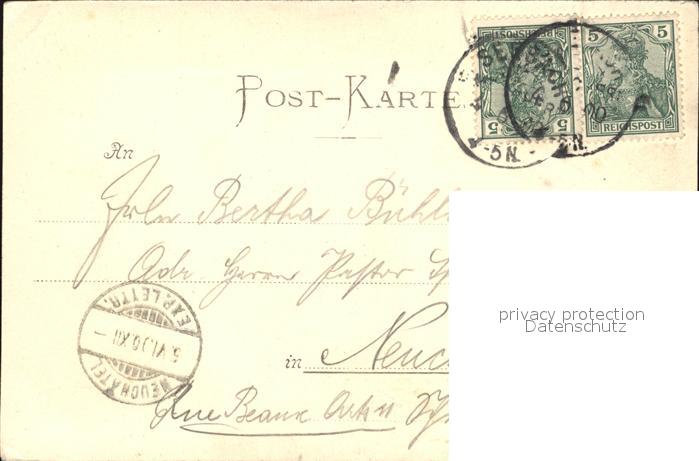 5 REICHSPOST
5 REICHSPOST
-5N.
-5N.
POST-KARTE
An
Frln Bertha Bühl
Adr. Herrn Pastor
in Neuc
Rue Beaux Arts 11
NEUCHATEL
5.VI.00.XII-
EXP.LETTR.
privacy protection
Datenschutz